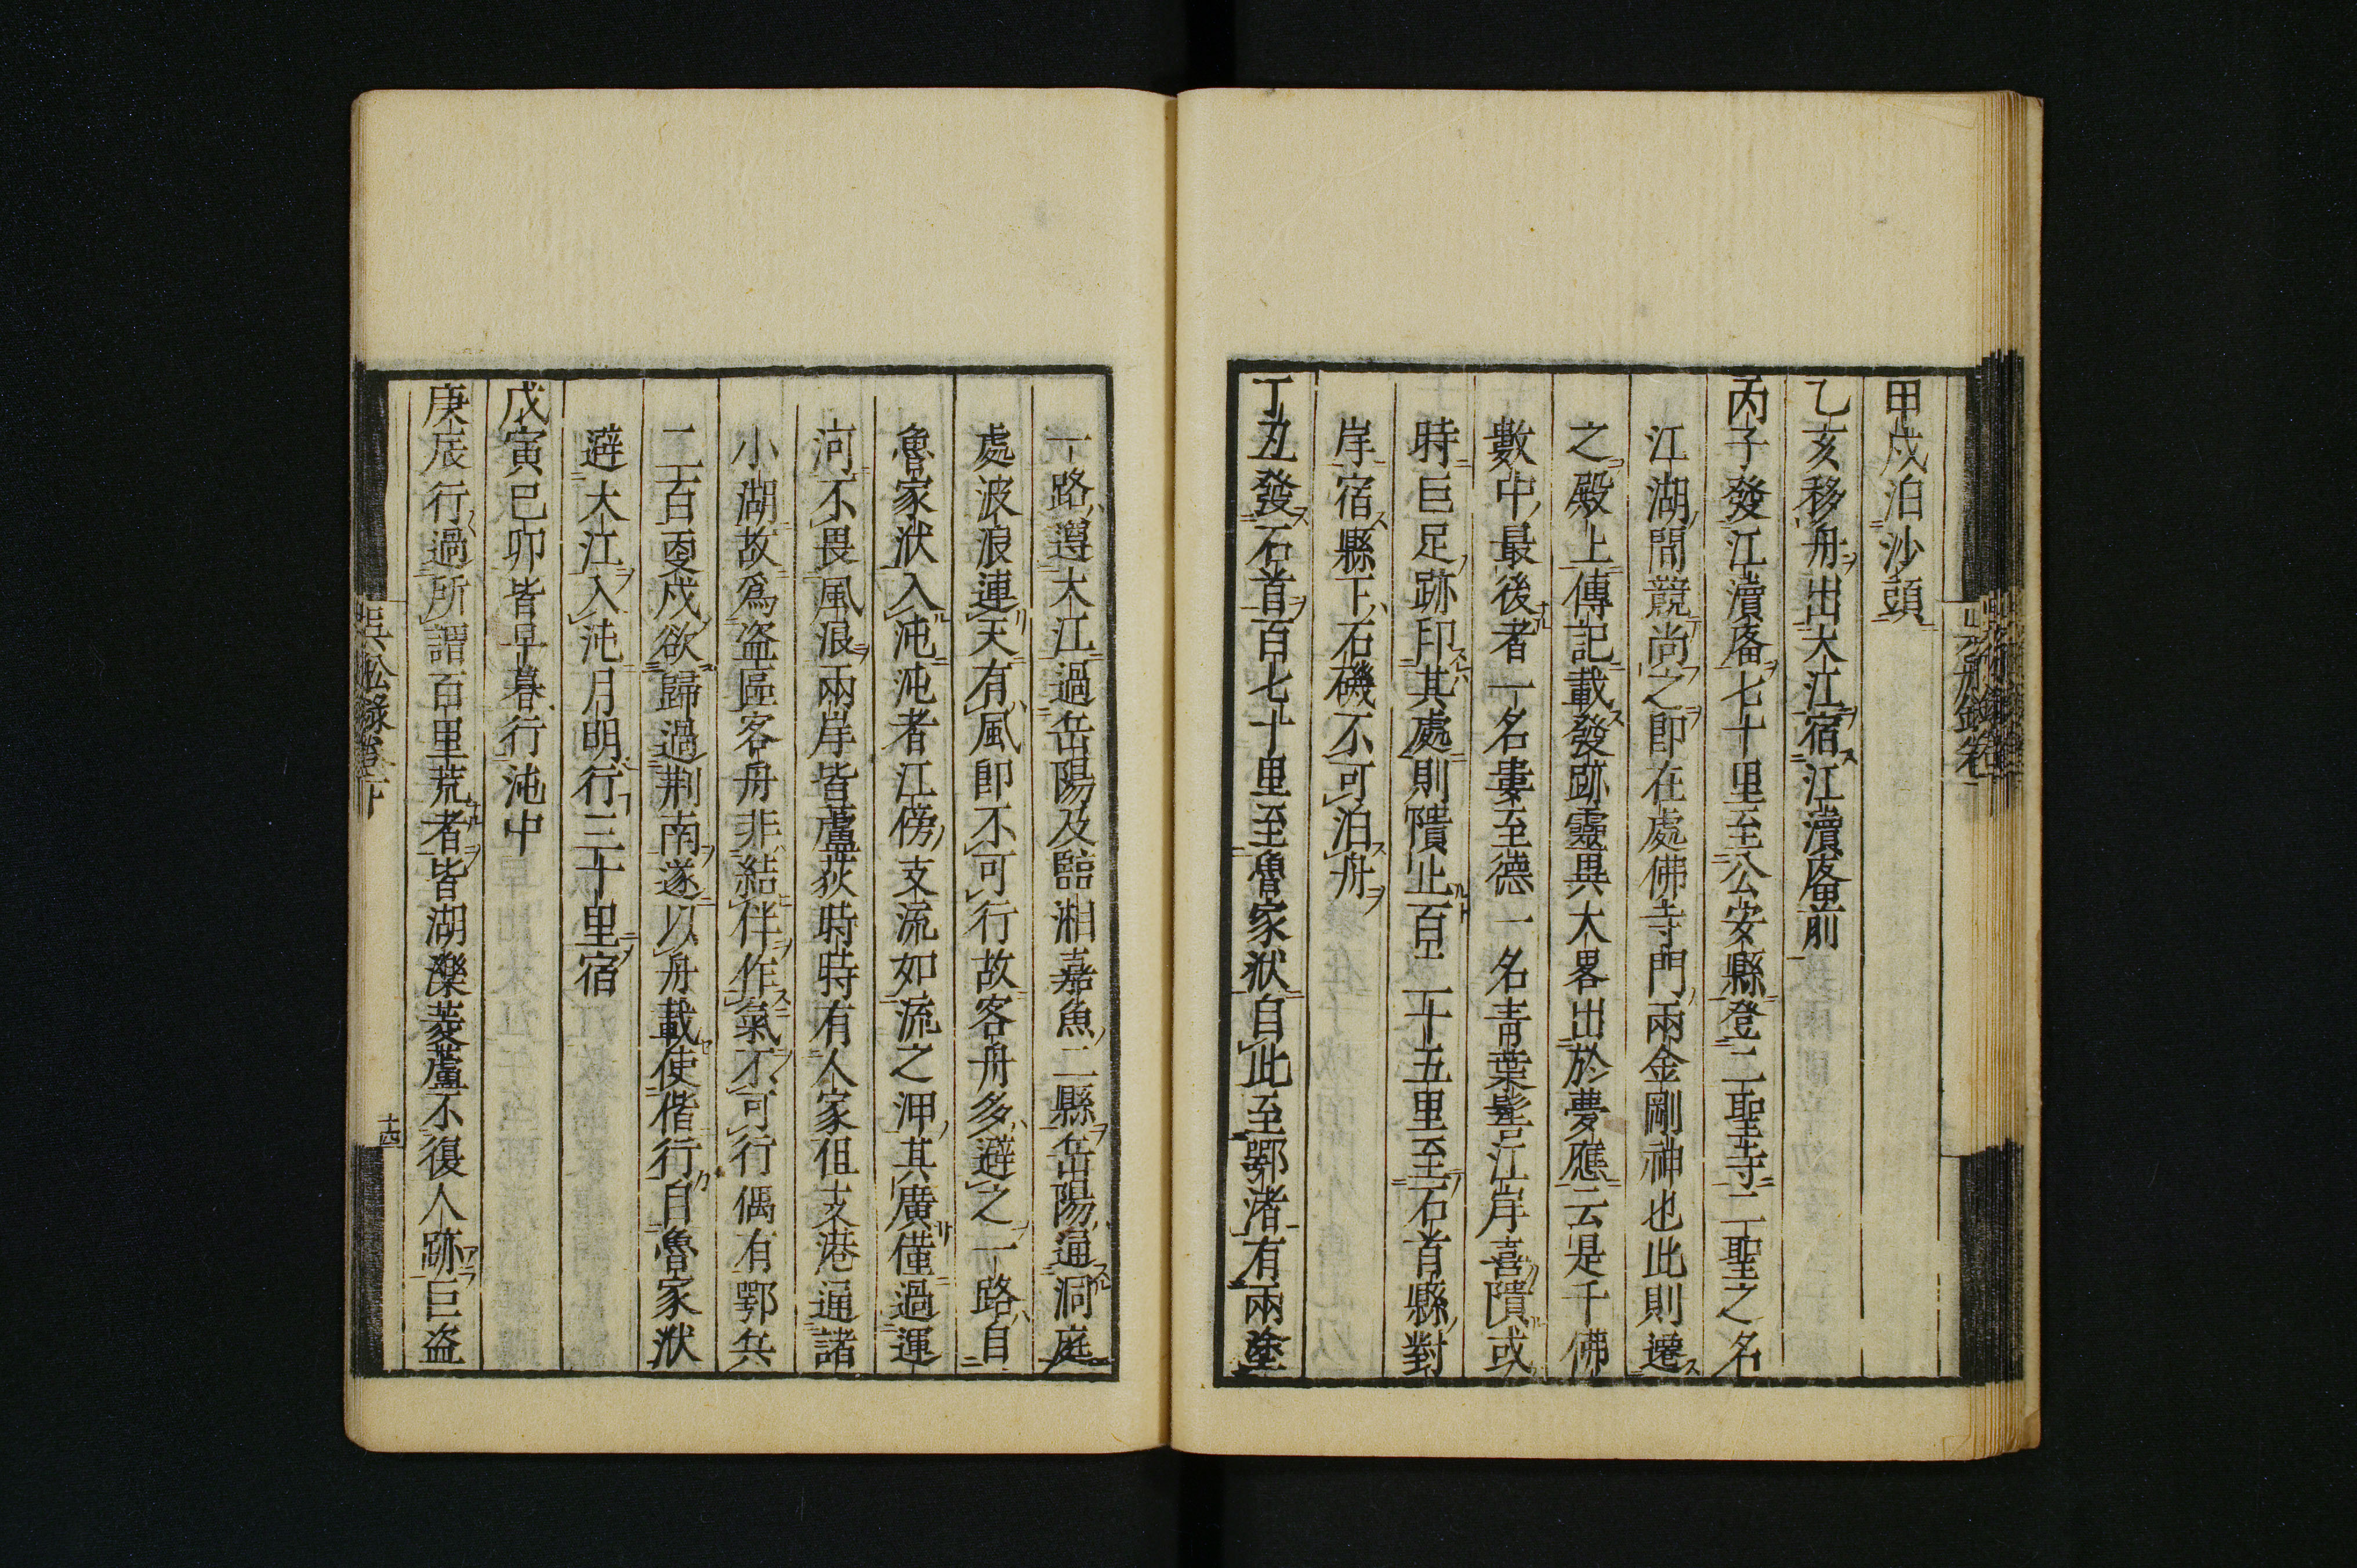 甲戍泊沙頭
乙亥移舟出大江宿江瀆庿前
丙子發江瀆庿七十里至公安縣登二聖寺二聖之名
江湖間競尚之即在處佛寺門兩金剛神也此則遷
之殿上傳記載發跡靈異大畧出於夢應云是千佛
數中最後者一名婁至德一名青葉髻江岸喜隤或
時巨足跡印其處則隤止百二十五里至石首縣對
岸宿縣下石磯不可泊舟
丁丑發石首百七十里至魯家洑自此至鄂渚有兩塗
一路遵大江過岳陽及臨湘嘉魚二縣岳陽通洞庭
處波浪連天有風即不可行故客舟多避之一路自
魯家洑入沌沌者江傍支流如流之浬其廣僅過運
河不畏風浪兩岸皆蘆荻時時有人家但支港通諸
小湖故爲盜區客舟非結伴作氣不可行偶有鄂兵
二百更戍欲歸過荆南遂以舟載使偕行自魯家洑
避大江入沌月明行三十里宿
戊寅巳卯皆早暮行沌中
庚辰行過所謂百里荒者皆湖濼菱蘆不復人跡巨盜
吳船錄卷下
十四